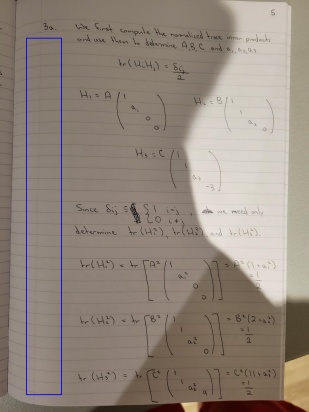 5
3a. We first compute the normalized trace inner products
and use them to determine A, B, C and a₁, a₂, a₃
tr(HᵢHⱼ) = δᵢⱼ/2
H₁ = A (1 a₁ 0 0) H₂ = B (1 1 a₂ 0)
H₃ = C (1 1 a₃ -3)
Since δᵢⱼ ≡ { 1 i=j 0 i≠j , we need only
determine tr(H₁²), tr(H₂²) and tr(H₃²).
tr(H₁²) = tr [A² (1 a₁² 0 0)] = A²(1+a₁²) = 1/2
tr(H₂²) = tr [B² (1 1 a₂² 0)] = B²(2+a₂²) = 1/2
tr(H₃²) = tr [C² (1 1 a₃² 9)] = C²(11+a₃²) = 1/2